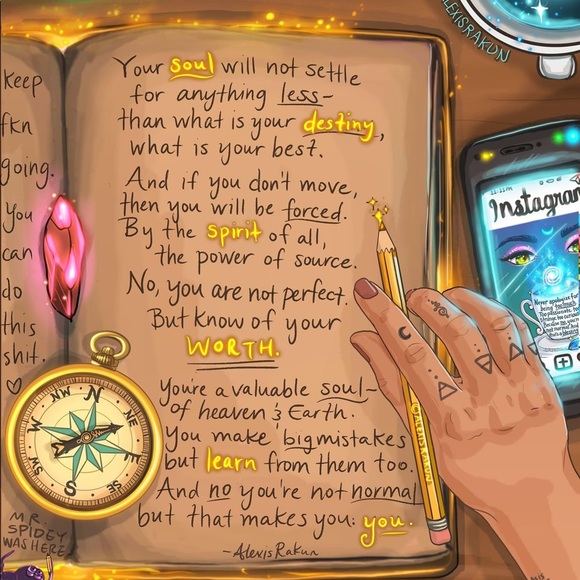 keep
fkn
going.
You
can
do
this
shit.
♡
MR.
SPIDEY
WAS HERE
Your soul will not settle
for anything less-
than what is your destiny,
what is your best.
And if you don't move,
then you will be forced.
By the spirit of all,
the power of source.
No, you are not perfect.
But know of your
WORTH.
You're a valuable soul-
of heaven & Earth.
You make big mistakes
but learn from them too.
And no you're not normal
but that makes you: you.
~AlexisRakun
N
NE
E
SE
S
SW
W
NW
ALEXISRAKUN
11:11am
Instagram
Never apologize for
being too much